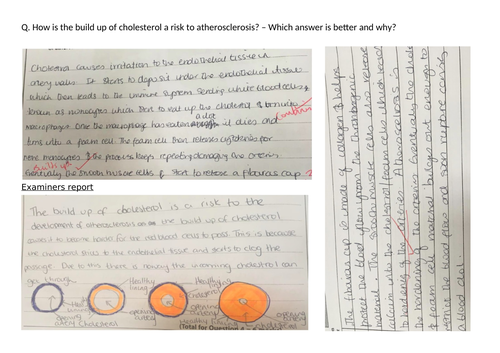 Q. How is the build up of cholesterol a risk to atherosclerosis? – Which answer is better and why?
Cholesterol causes irritation to the endothelial tissue in
artery valve. It starts to deposed under the endothelial tissue
which then leads to the immune system sending white blood cells
known as monocytes which start to eat up the cholesterol & becoming
macrophages. Once the macrophage has eaten a lot it dies and
turns into a foam cell. The foam cell then releases cytokines for
more monocytes & the process keeps repeating damaging the arteries.
Eventually the smooth muscle cells start to release a fibrous cap
Examiners report
The build up of cholesterol is a risk to the
development of atherosclerosis as the build up of cholesterol
causes it to become harder for the red blood cells to pass. This is because
the cholesterol sticks to the endothelial tissue and starts to clog the
passage. Due to this there is the incoming cholesterol can
get through
Healthy
lining
opening
artery
Cholesterol
Healthy
lining
opening
(Total for Question
The fibrous cap is made of collagen & helps
protect the blood flow from the thrombogenic
material. The smooth muscle cells also release
calcium into the cholesterol/foam cells which leads
to hardening of the arteries. Atherosclerosis is
the hardening of the arteries. Eventually the
& foam cell material bulges out enough to
the blood flow and can rupture causing
a blood clot.